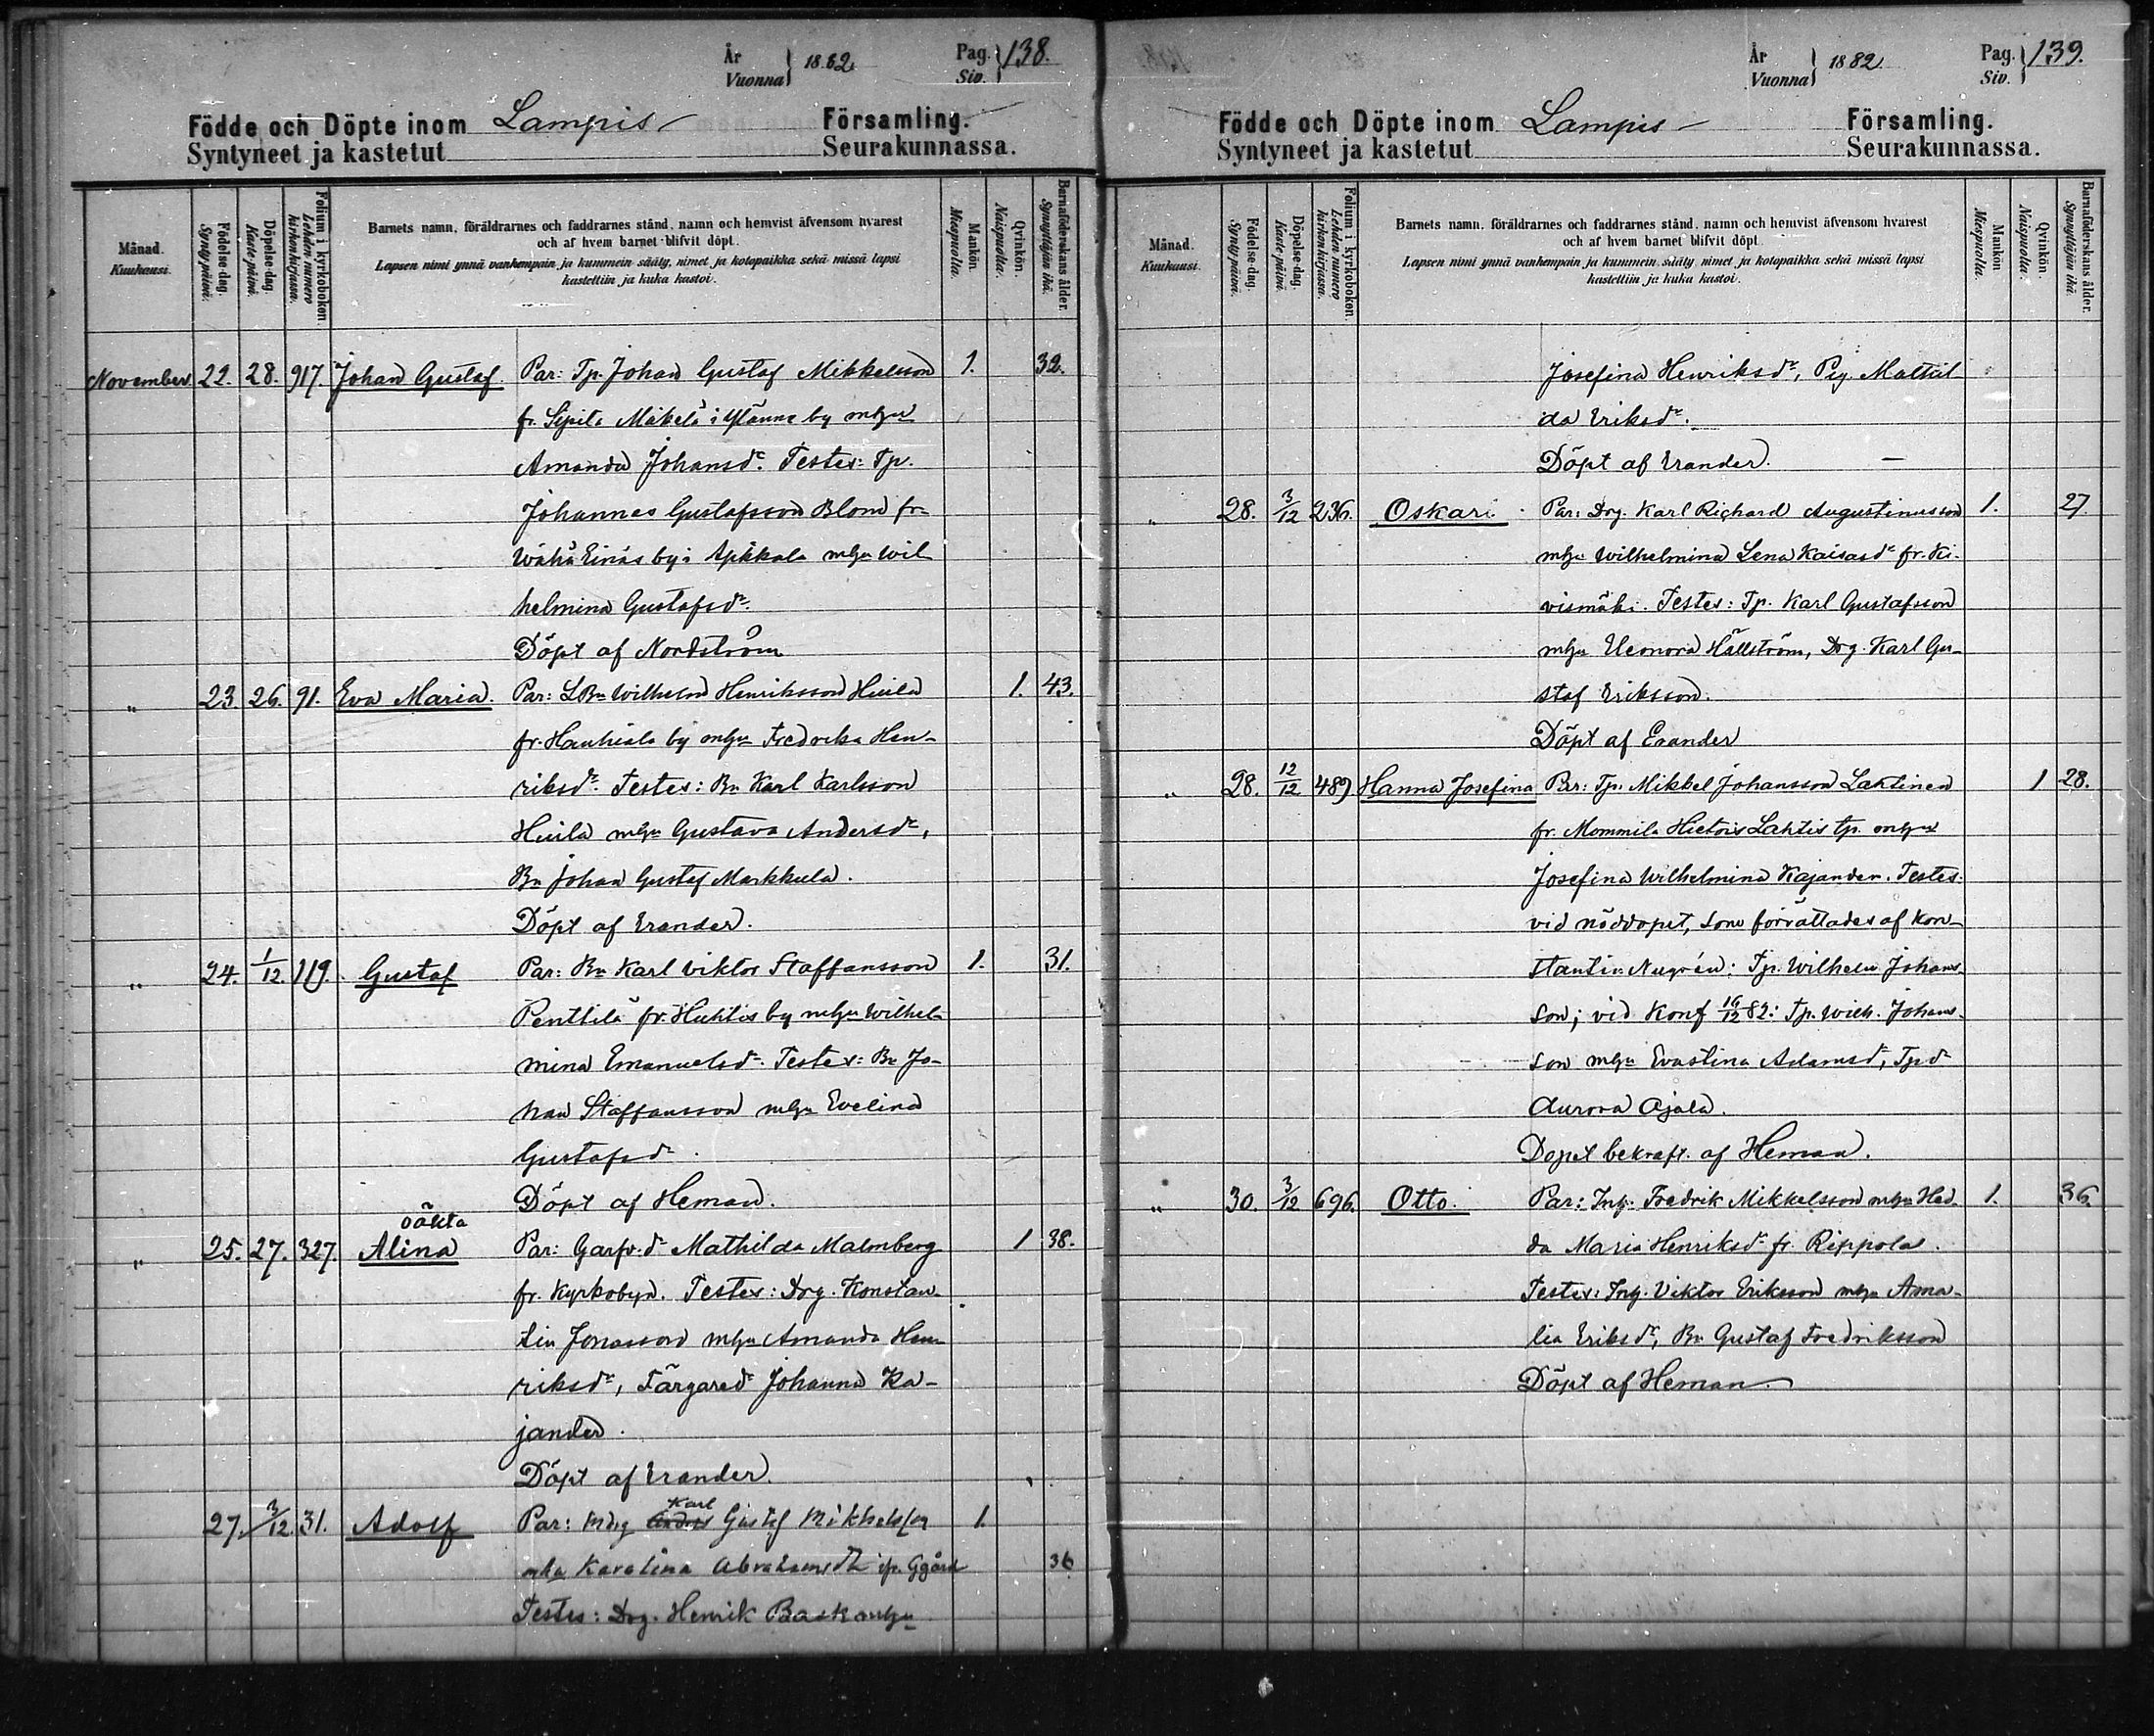 År
Vuonna
1882.
Pag.
Siv.
138.
Födde och Döpte inom Lampis Församling.
Syntyneet ja kastetut Seurakunnassa.
Månad.
Kuukausi.
Födelse-dag.
Syntypäivä.
Döpelse-dag.
Kaste-päivä.
Folium i kyrkoboken.
Lehden numero
kirkonkirjassa.
Barnets namn, föräldrarnes och faddrarnes stånd, namn och hemvist äfvensom hvarest
och af hvem barnet blifvit döpt.
Lapsen nimi ynnä vanhempain ja kummein sääty, nimet ja kotopaikka sekä missä lapsi
kastettiin ja kuka kastoi.
Mankön.
Miespuolia.
Qvinkön.
Naispuolia.
Barnaföderskans ålder.
Synnyttäjän ikä.
November 22. 28. 917. Johan Gustaf Par: Tp. Johan Gustaf Mikkelsson 1. 32.
fr. Sipila Mäkelä i by mhu
Amanda Johansdr. Testes: Tp.
Johannes Gustafsson Blom fr
Wähä Einäs by i mhu Wil
helmina Gustafsdr.
Döpt af Nordström
" 23. 26. 91. Eva Maria. Par: LBn Wilhelm Henriksson Huila 1. 43.
fr. Hauhiala by mhu Fredrika Hen-
riksdr. Testes: Bn Karl Karlsson
Huila mhu Gustava Andersdr,
Bn Johan Gustaf Markkula.
Döpt af Erander.
" 24. 1/12. 119. Gustaf Par: Bn Karl Viktor Staffansson 1. 31.
Penttilä fr. Huhtis by mhu Wilhel-
mina Emanuelsdr. Testes: Bn Jo-
han Staffansson mhu Evelina
Gustafsdr.
Döpt af Heman.
oäkta
" 25. 27. 327. Alina Par: Garfv.dr Mathilda Malmberg 1 38.
fr. Kyrkobyn. Testes: Drg. Konstan-
tin Jonasson mhu Amanda Hen-
riksdr, Färgaredr Johanna Ka-
jander.
Döpt af Erander.
Karl
27. 3/12. 31. Adolf Par: Mdrg Gustaf Mikkelsson 1.
mhu Karolina Abrahamsdtr fr. Ggård 36
Testes: Drg. Henrik Bask mhu
År
Vuonna
1882.
Pag.
Siv.
139.
Födde och Döpte inom Lampis Församling.
Syntyneet ja kastetut Seurakunnassa.
Månad.
Kuukausi.
Födelse-dag.
Syntypäivä.
Döpelse-dag.
Kaste-päivä.
Folium i kyrkoboken.
Lehden numero
kirkonkirjassa.
Barnets namn, föräldrarnes och faddrarnes stånd, namn och hemvist äfvensom hvarest
och af hvem barnet blifvit döpt.
Lapsen nimi ynnä vanhempain ja kummein sääty, nimet ja kotopaikka sekä missä lapsi
kastettiin ja kuka kastoi.
Mankön
Miespuolia.
Qvinkön.
Naispuolia.
Barnaföderskans ålder.
Synnyttäjän ikä.
Josefina Henriksdr, Pig. Mathil-
da Eriksdr.
Döpt af Erander. —
" 28. 3/12 236. Oskari. Par: Drg. Karl Richard Augustinusson 1. 27.
mhu Wilhelmina Lena Kaisasdr fr. Ki-
vismäki. Testes: Tp. Karl Gustafsson
mhu Eleonora Hällström, Drg. Karl Gu-
staf Eriksson.
Döpt af Erander
" 28. 12/12 489 Hanna Josefina Par: Tp. Mikkel Johansson Lahtinen 1 28.
fr. Mommila Hietois Lahtis tp. mhu
Josefina Wilhelmina Kajander. Testes:
vid nöddopet, som förrättades af Kon-
stantin Nygrén: Tp. Wilhelm Johans-
son; vid Konf 16/12 82: Tp. Wilh. Johans-
son mhu Evastina Adamsdr, Tpdr
Aurora Ajala.
Dopet bekräft. af Heman.
" 30. 3/12 696. Otto. Par: Inh. Fredrik Mikkelsson mhu Hed- 1. 36.
da Maria Henriksdr fr. Rippola.
Testes: Inh. Viktor Eriksson mhu Ama-
lia Eriksdr, Bn Gustaf Fredriksson
Döpt af Heman.